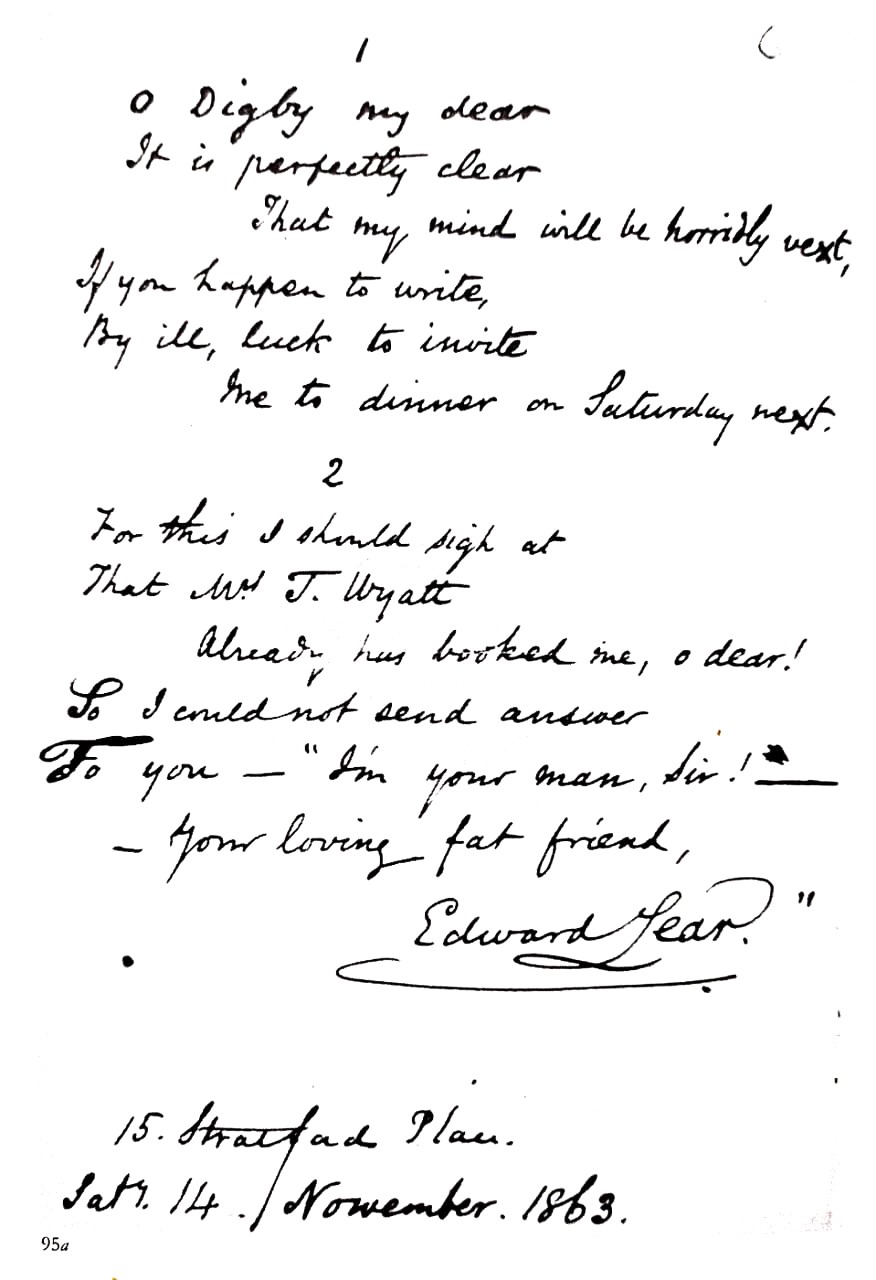 1
O Digby my dear
It is perfectly clear
That my mind will be horridly vext,
If you happen to write,
By ill, luck to invite
Me to dinner on Saturday next.
2
For this I should sigh at
That Mrs T. Wyatt
Already has booked me, o dear!
So I could not send answer
To you — "I'm your man, Sir!—
— Your loving fat friend,
Edward Lear."
15. Stratford Place.
Saty. 14. / November. 1863.
95a